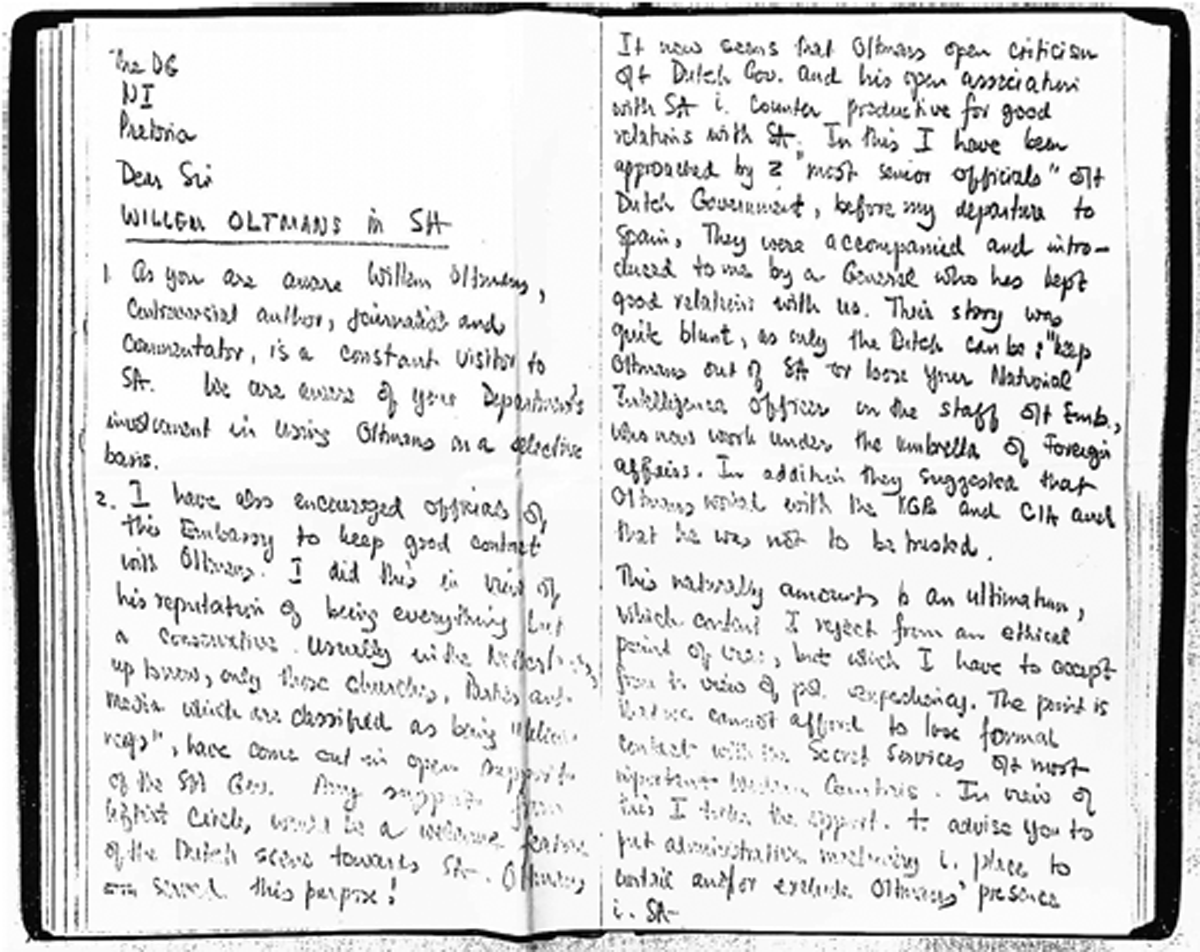 The DG
NI
Pretoria
Dear Sir
WILLEM OLTMANS in SA
1. As you are aware Willem Oltmans,
Controversial author, journalist and
Commentator, is a constant visitor to
SA. We are aware of your Department's
involvement in using Oltmans on a selective
basis.
2. I have also encouraged officials of
this Embassy to keep good contact
with Oltmans. I did this in view of
his reputation of being everything but
a Conservative. Usually in the
up to now, only those churches, Parties and
media which are classified as being
have come out in open support
of the SA Gov. Any support from
leftist Circle, would be a welcome feature
of the Dutch scene towards SA. Oltmans
served this purpose!
It now seems that Oltmans open criticism
oft Dutch Gov. and his open association
with SA i. counter productive for good
relations with SA. In this I have been
approached by 2 "most senior officials" oft
Dutch Government, before my departure to
Spain. They were accompanied and intro-
duced to me by a General who has kept
good relations with us. Their story was
quite blunt, as only the Dutch can be: "keep
Oltmans out of SA or loose your National
Intelligence officer in the staff oft Emb.,
who now work under the umbrella of Foreign
affairs. In addition they suggested that
Oltmans worked with the KGB and CIA and
that he was not to be trusted.
This naturally amounts to an ultimatum,
which content I reject from an ethical
point of view, but which I have to accept
from t. view of pol. expediency. The point is
that we cannot afford to lose formal
contact with the Secret Services oft most
important Western Countries. In view of
this I take the opport. t. advise you to
put administrative machinery i. place to
curtail and/or exclude Oltmans' presence
i. SA